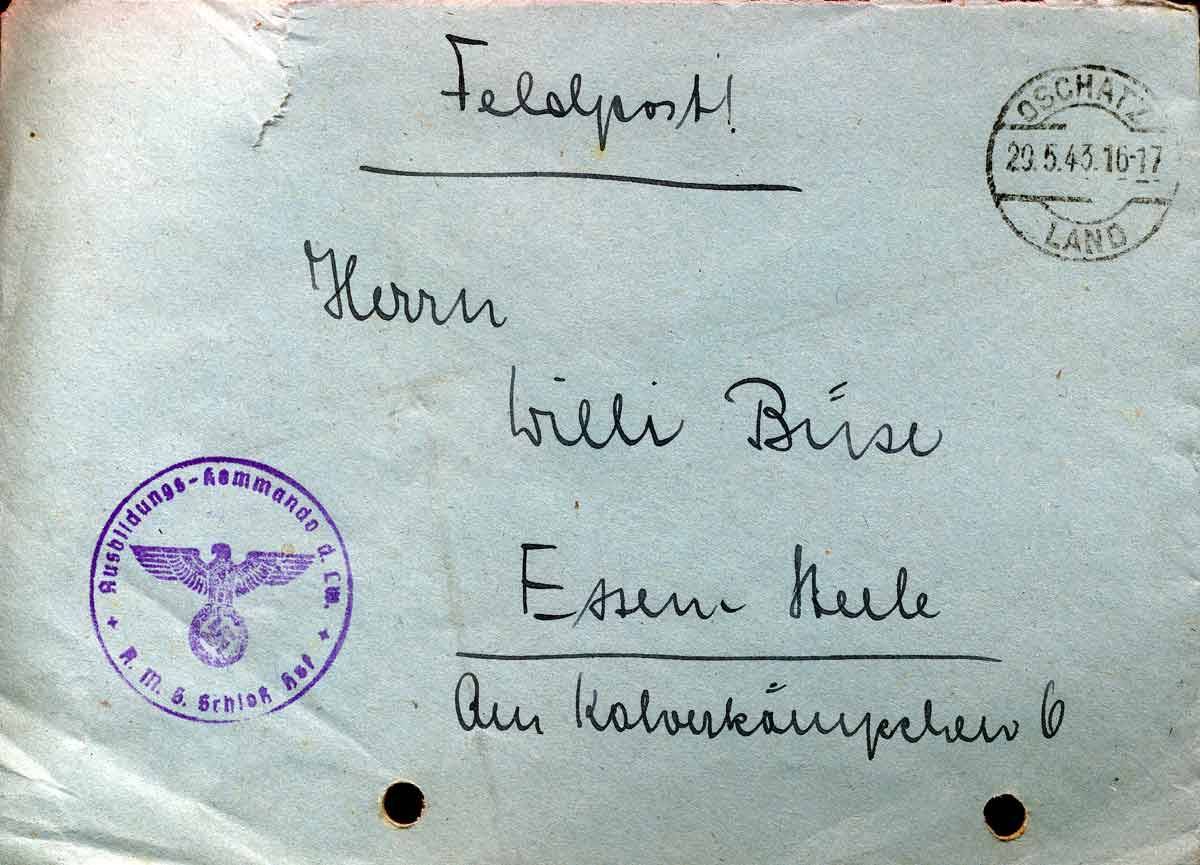 Feldpost!
OSCHATZ
29.5.43.16-17
LAND
Herrn
Willi Büse
Ausbildungs-Kommando d. Lw.
Essen- Steele
R. M. S. Schloß Hof
Am Kalverkämpchen 6